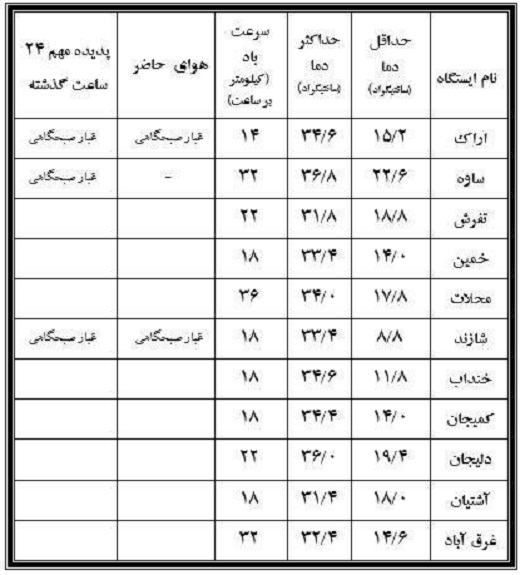 نام ایستگاه حداقل دما (سانتیگراد) حداکثر دما (سانتیگراد) سرعت باد (کیلومتر بر ساعت) هوای حاضر پدیده مهم ۲۴ ساعت گذشته
اراک ۱۵/۲ ۳۴/۶ ۱۴ غبار صبحگاهی غبار صبحگاهی
ساوه ۲۲/۶ ۳۶/۸ ۳۲ - غبار صبحگاهی
تفرش ۱۸/۸ ۳۱/۸ ۲۲
خمین ۱۴/۰ ۳۳/۴ ۱۸
محلات ۱۷/۸ ۳۴/۰ ۳۶
شازند ۸/۸ ۳۳/۴ ۱۸ غبار صبحگاهی غبار صبحگاهی
خنداب ۱۱/۸ ۳۴/۶ ۱۸
کمیجان ۱۴/۰ ۳۴/۴ ۱۸
دلیجان ۱۹/۴ ۳۶/۰ ۲۲
آشتیان ۱۸/۰ ۳۱/۴ ۱۸
غرق آباد ۱۴/۶ ۳۲/۴ ۳۲